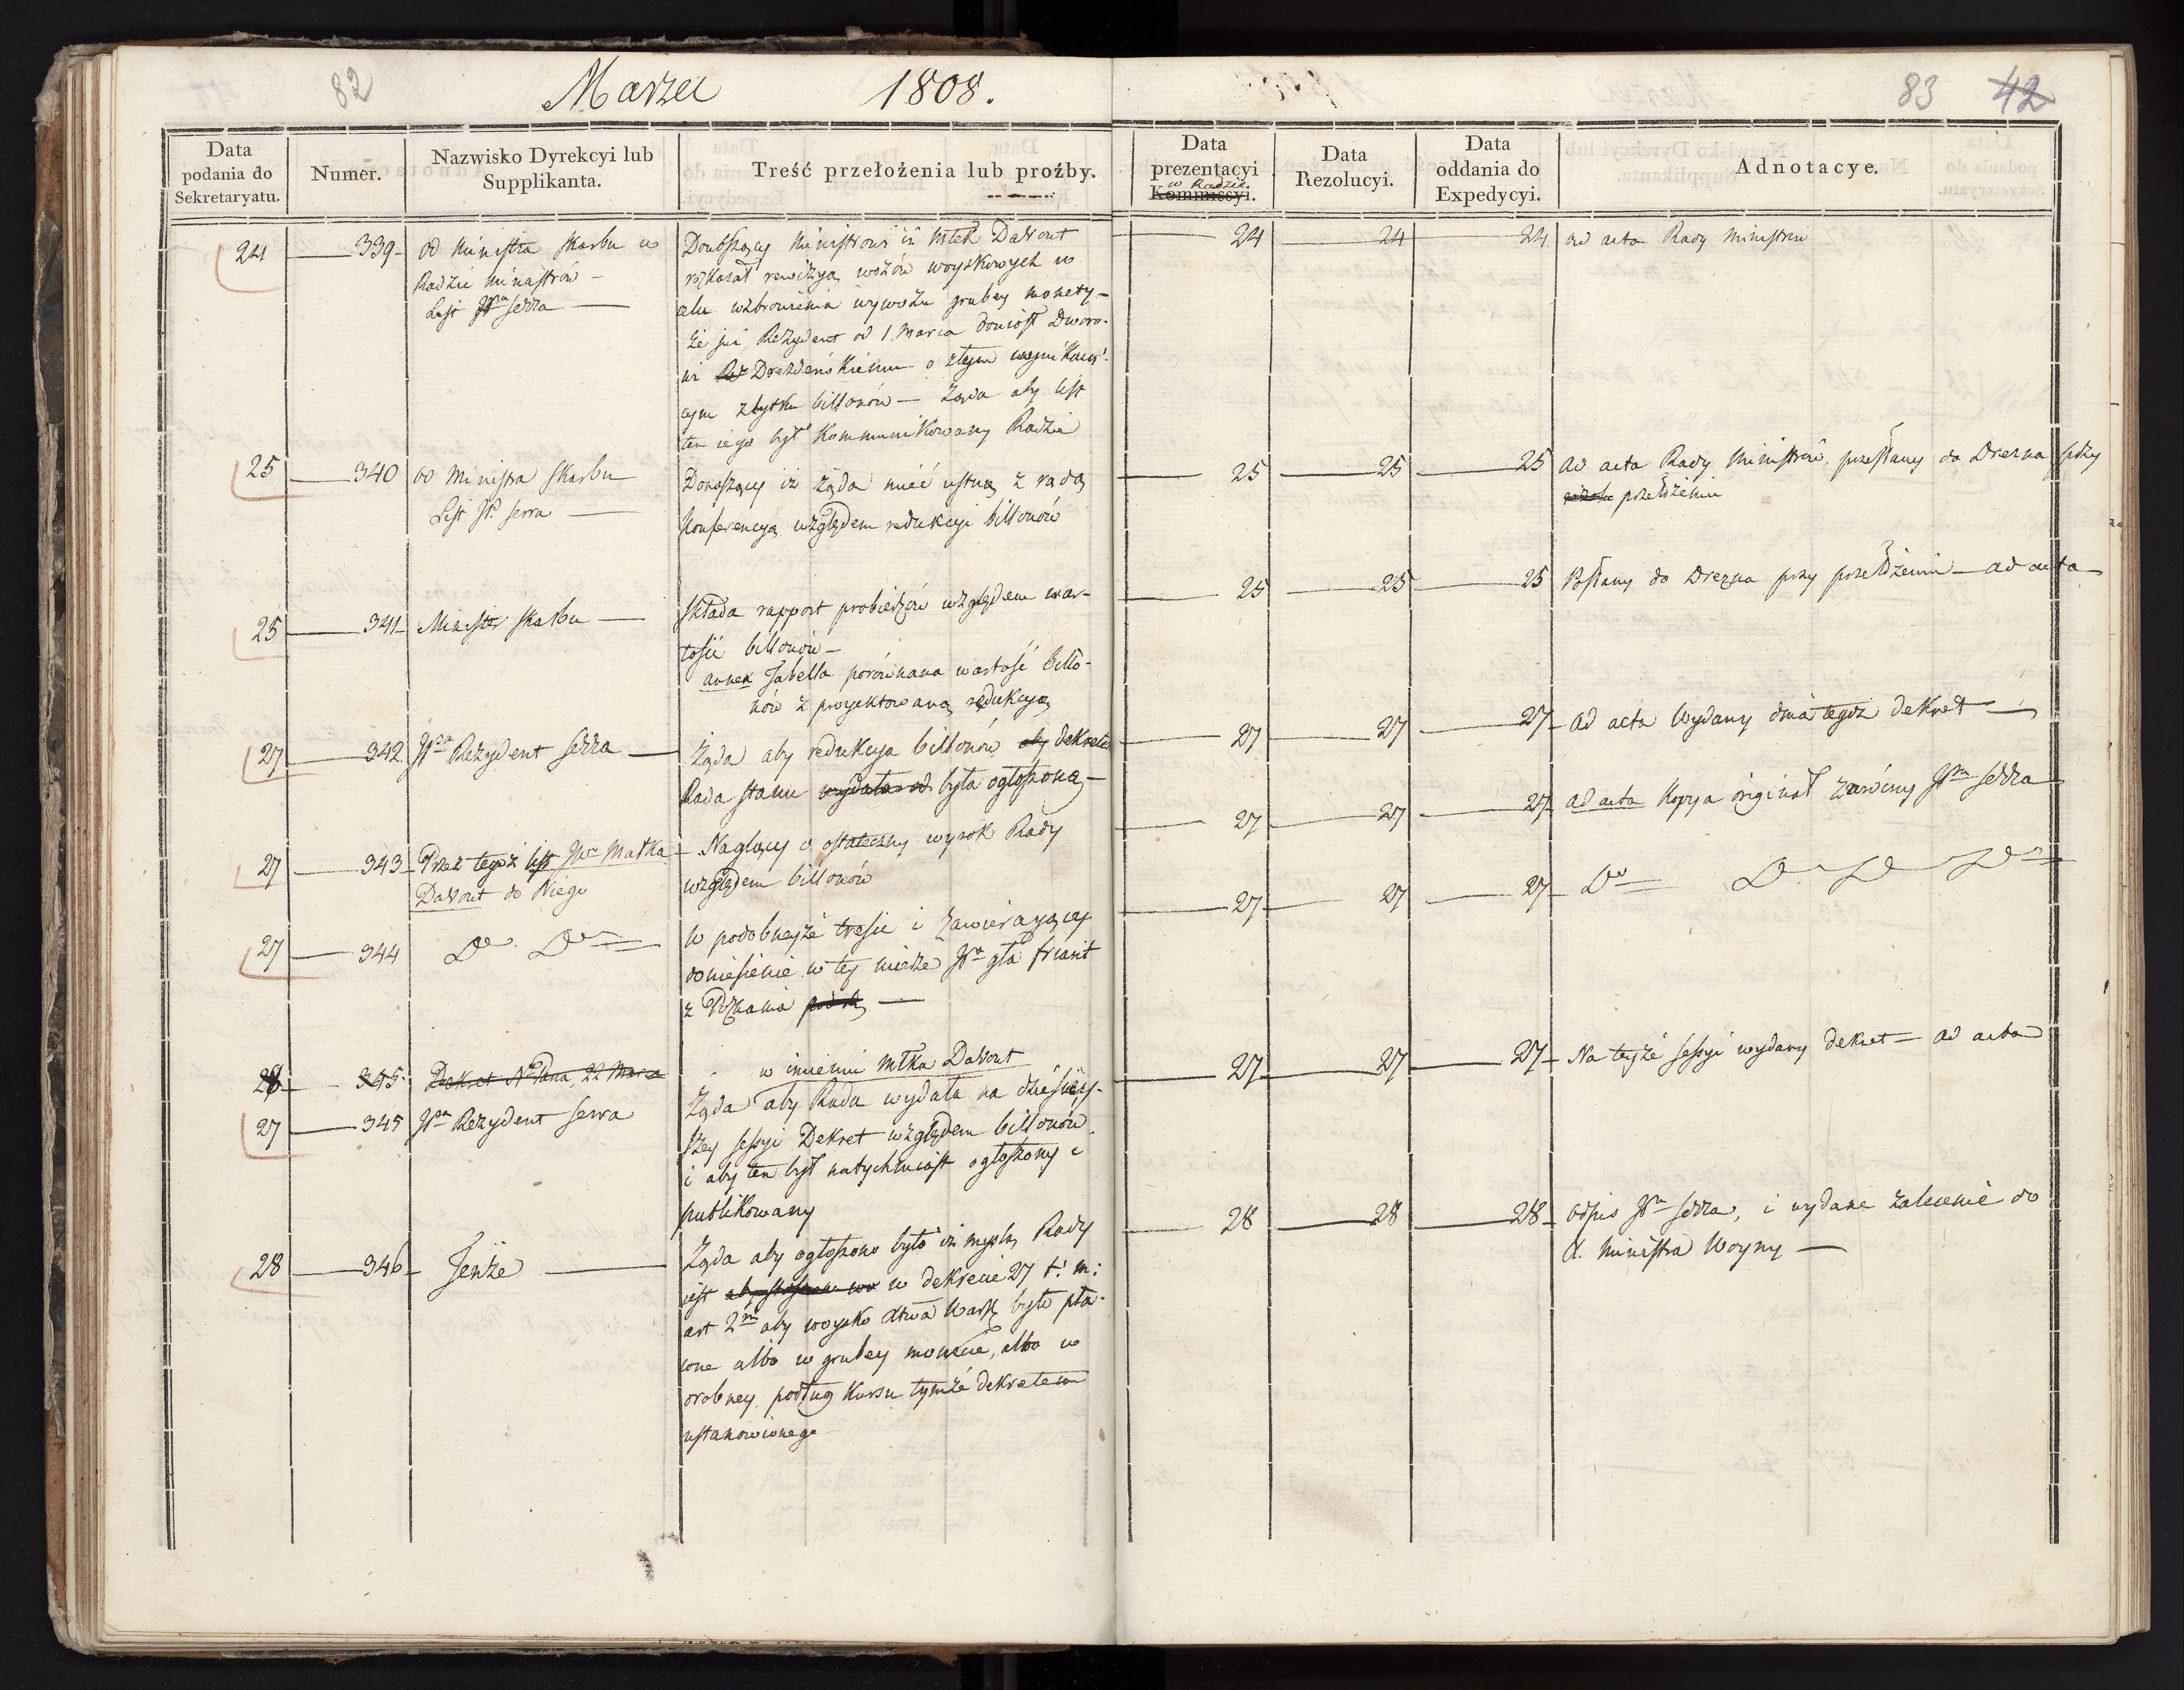 82
Marzec 1808.
83 42
Data podania do Sekretaryatu.
Numer.
Nazwisko Dyrekcyi lub Supplikanta.
Treść przełożenia lub proźby.
Data prezentacyi w Radzie Kommissyi.
Data Rezolucyi.
Data oddania do Expedycyi.
Adnotacye.
24 339 Od Ministra Skarbu w
Radzie Ministrów
List JPna Serra
Donoszący Ministrowi iż Młek Davout
rozkazał rewizyą wozów woyskowych w
celu wzbronienia wywozu grubey monety
że już Rezydent od 1 Marca doniósł Dworo-
wi Drezdeńskiemu o złym wynikaią-
cym zbytku billonów — Żąda aby list
ten iego był kommunikowany Radzie
24 24 24 ad acta Rady Ministrów
25 340 od Ministra Skarbu
List JP. Serra
Donoszący iż żąda mieć ustną z radą
Konferencyą względem redukcyi billonów
25 25 25 ad acta Rady Ministrów, przesłany do Drezna przy
przełożeniu
25 341 Minister Skarbu
Składa rapport probierzów względem war-
tości billonów —
annex Tabella porównana wartość billo-
nów z proyektowaną redukcyą
25 25 25 Posłany do Drezna przy przełożeniu — ad acta
27 342 JPan Rezydent Serra
Żąda aby redukcya billonów aby dekretem
Rada Stanu wydała od była ogłoszona —
27 27 27 ad acta Wydany dnia tegoż dekret
27 343 Przez tegoż list JWo Małka
Davout do Niego
Naglący o ostateczny wyrok Rady
względem billonów
27 27 27 ad acta Kopya originał zwrócony JPnu Serra
27 344 Do Do
W podobneyże treści i zawierający
doniesienie w tey mierze JPa Gła Friant
z Poznania
27 27 27 Do Do Do Do
28 345 Dekret N. Pana 22 Marca
27 345 JPan Rezydent Serra
w imieniu Młka Davout
Żąda aby Rada wydała na dzisiey-
szey sessyi Dekret względem billonów
i aby ten był natychmiast ogłoszony i
publikowany
27 27 27 Na teyże sessyi wydany dekret — ad acta
28 346 Tenże
Żąda aby ogłoszono było iż myślą Rady
iest w dekrecie 27 t: m:
art 2m aby woysko Xtwa Warsz było pła-
cone albo w grubey monecie, albo w
drobney podług kursu tymże dekretem
ustanowionego
28 28 28 Odpis JPnu Serra, i wydane zalecenie do
d. Ministra Woyny —